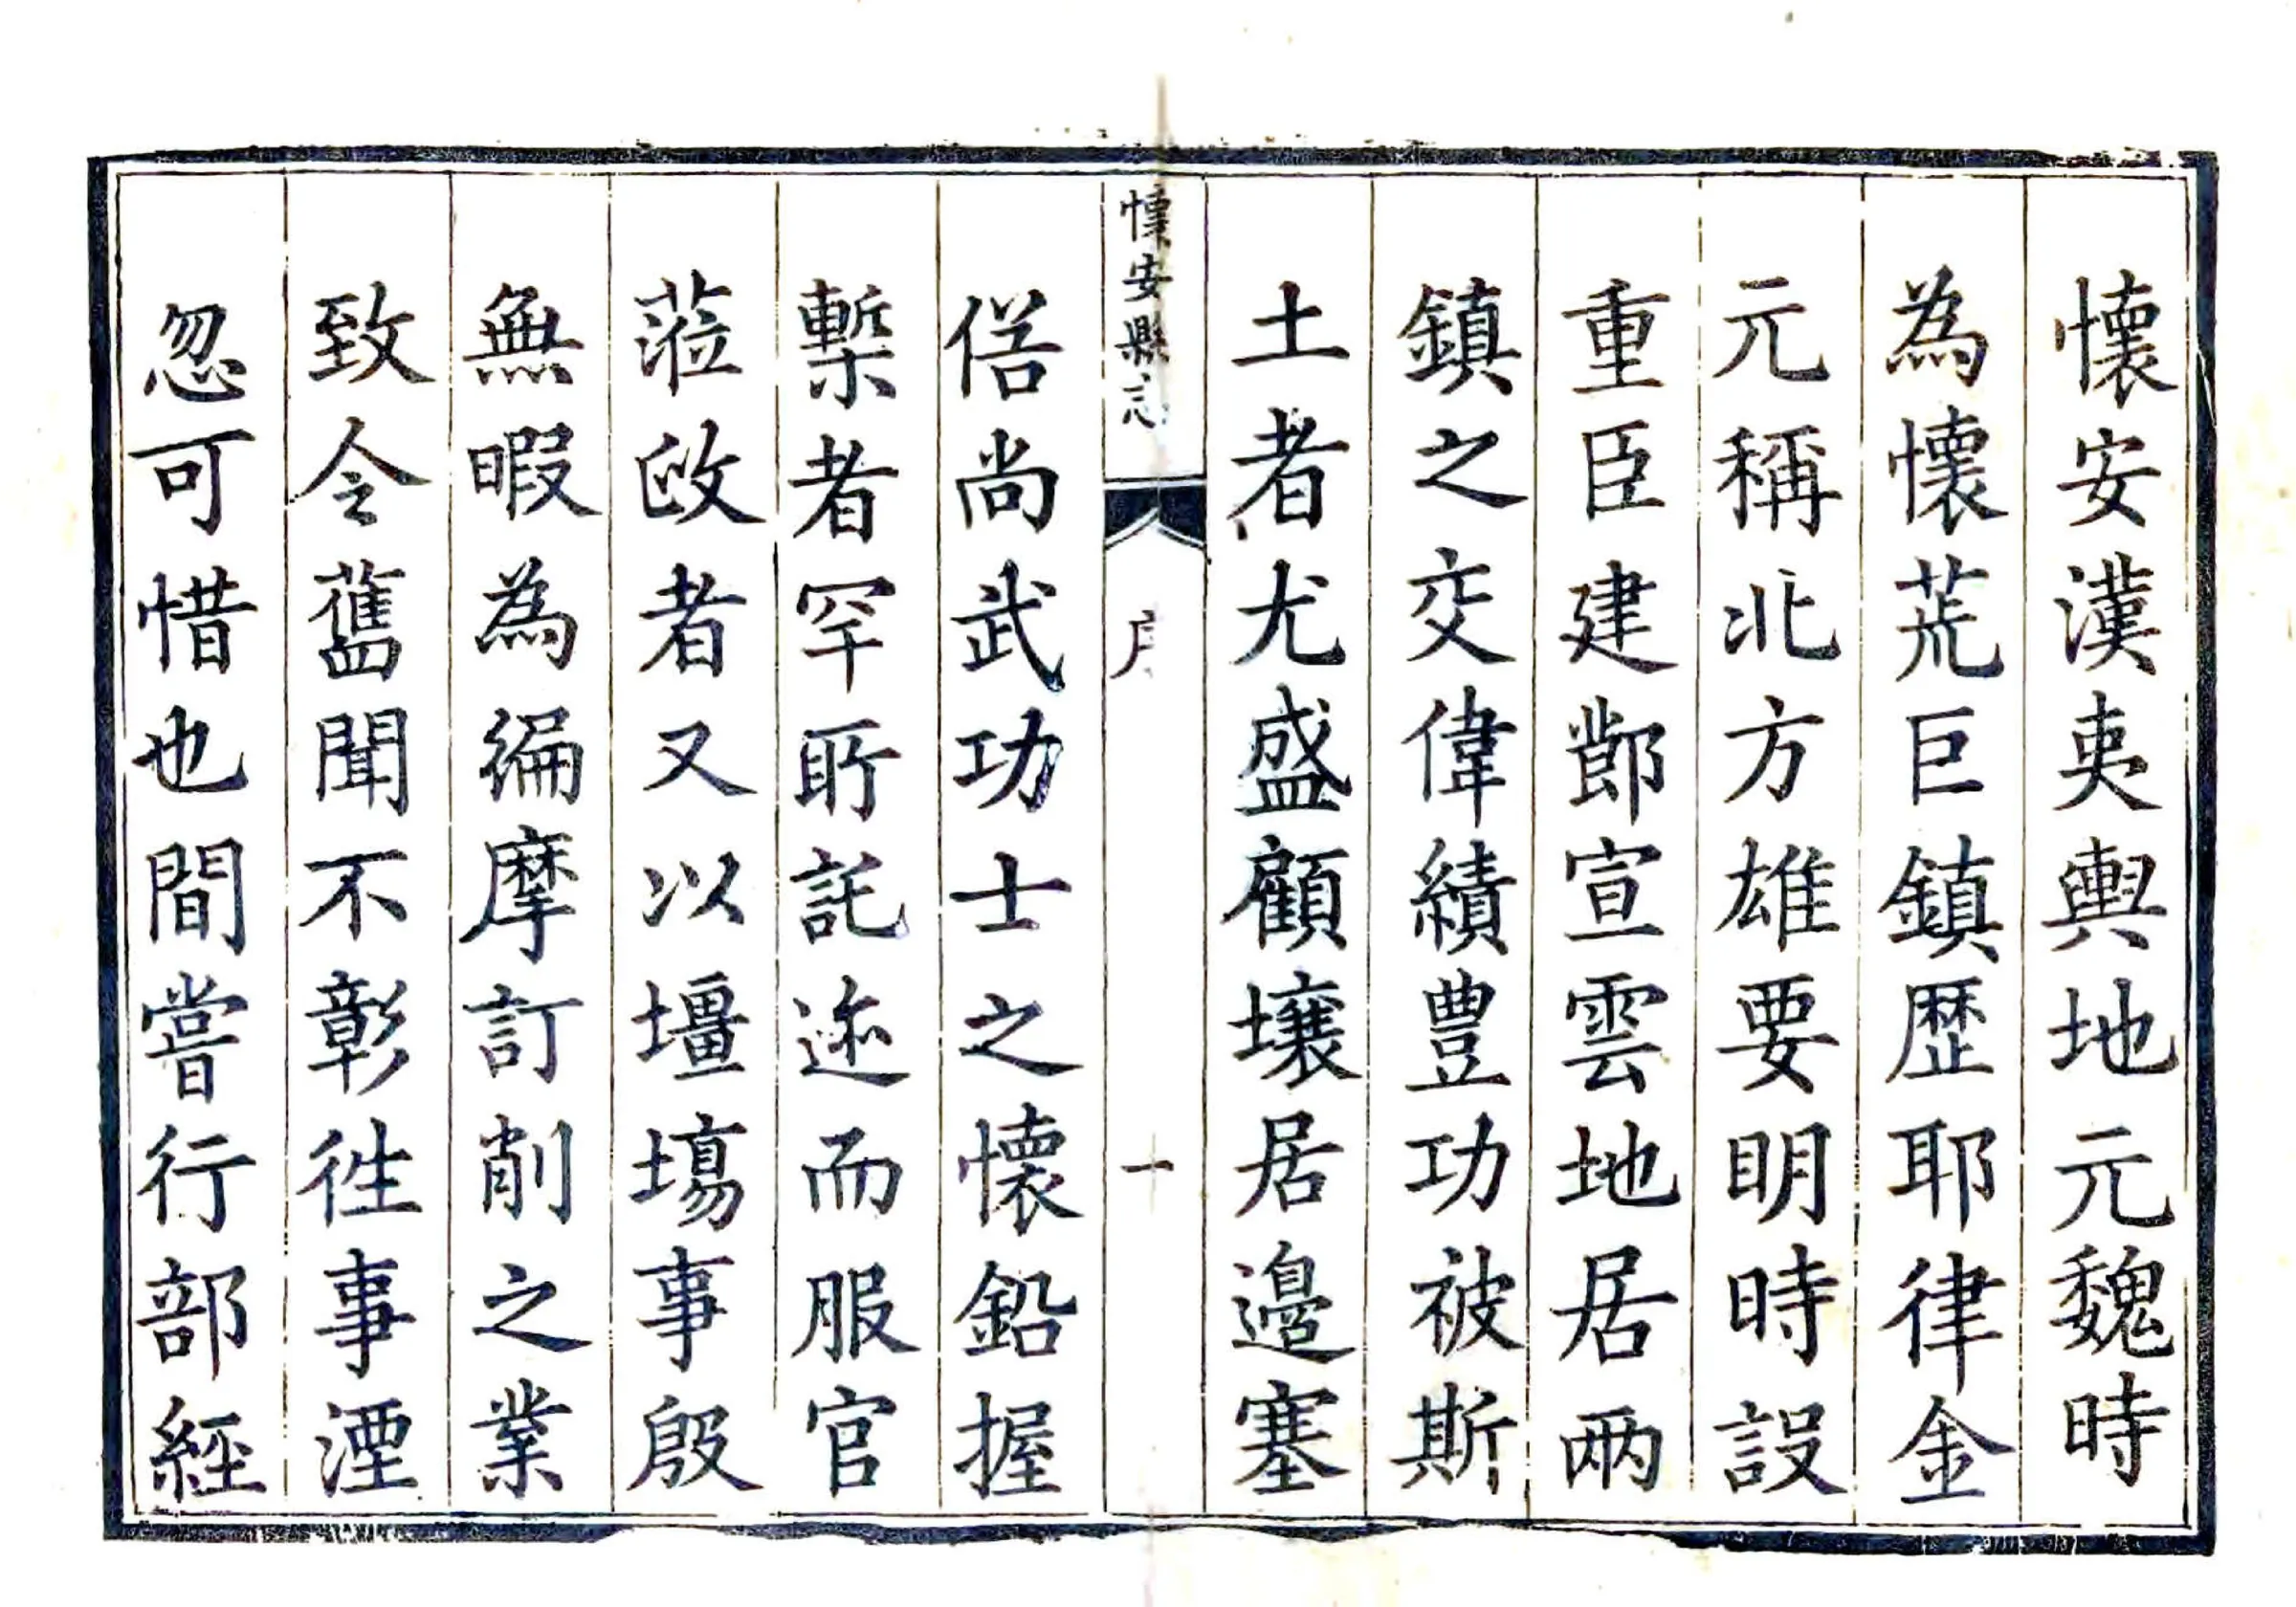 懷安漢夷輿地元魏時
為懷荒巨鎮歷耶律金
元稱北方雄要明時設
重臣建鄭宣雲地居兩
鎮之交偉績豊功被斯
土者尤盛顧壤居邉塞
懷安縣志
序
十
俗尚武功士之懷鉛握
槧者罕所託迹而服官
蒞政者又以壃塲事殷
無暇為編摩訂削之業
致令舊聞不彰徃事湮
忽可惜也間嘗行部經